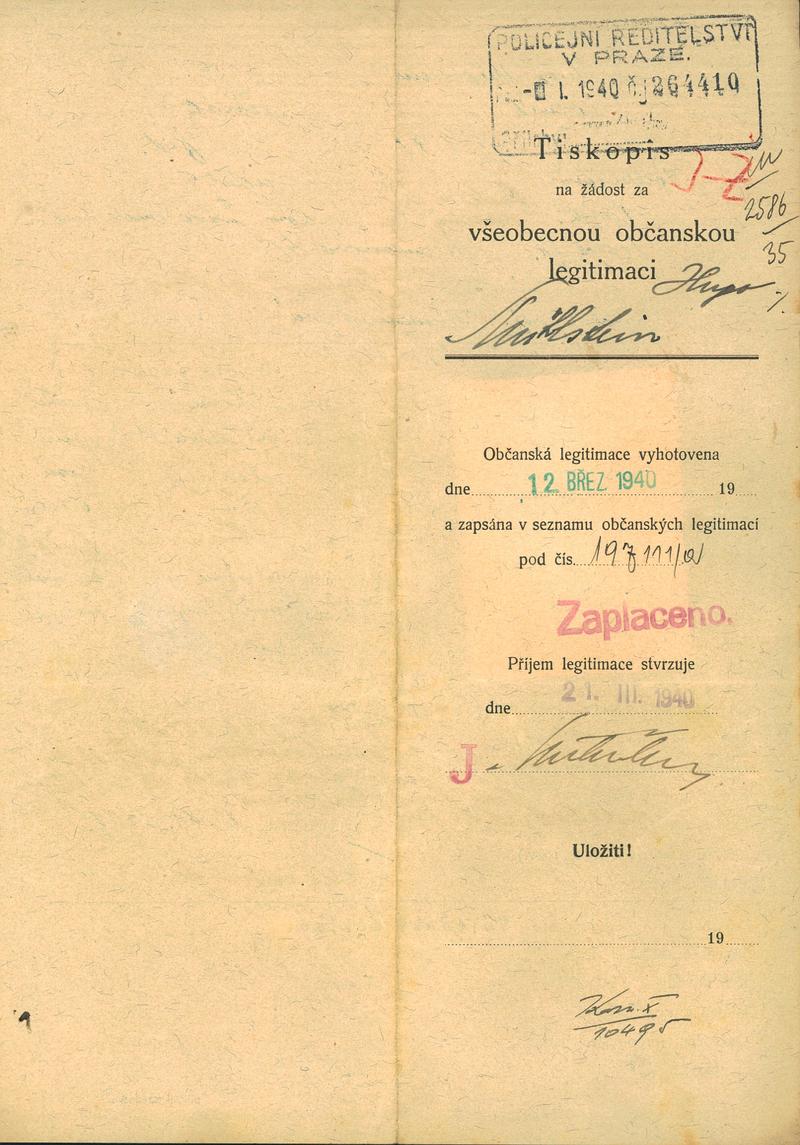 POLICEJNÍ ŘEDITELSTVÍ
V PRAZE.
I. 1940 č.j 264410
Tiskopis
na žádost za
2586
35
všeobecnou občanskou
legitimaci Hugo
Mühlstein
Občanská legitimace vyhotovena
dne 12. BŘEZ. 1940 19
a zapsána v seznamu občanských legitimací
pod čís. 197111/
Zaplaceno.
Příjem legitimace stvrzuje
dne 21. III. 1940
J
Uložiti!
19
10495